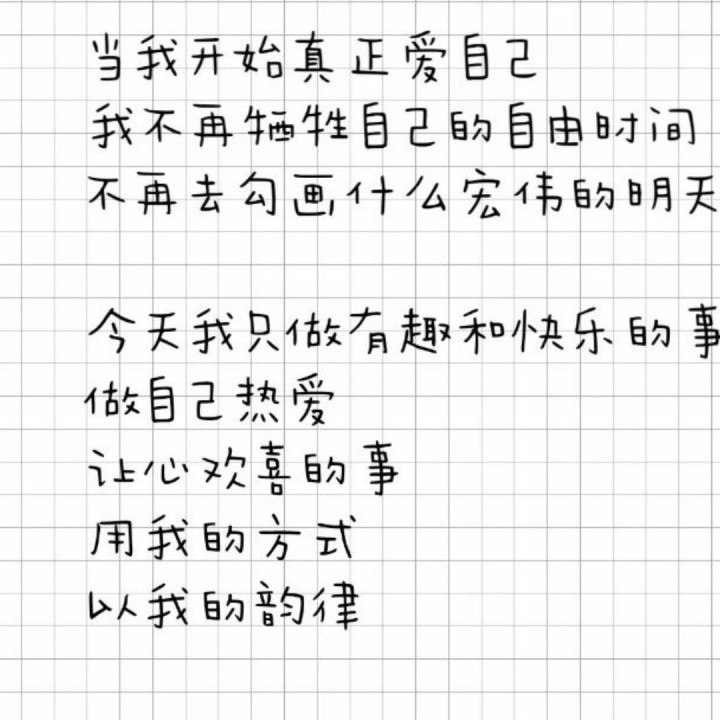 当我开始真正爱自己
我不再牺牲自己的自由时间
不再去勾画什么宏伟的明天
今天我只做有趣和快乐的事
做自己热爱
让心欢喜的事
用我的方式
以我的韵律